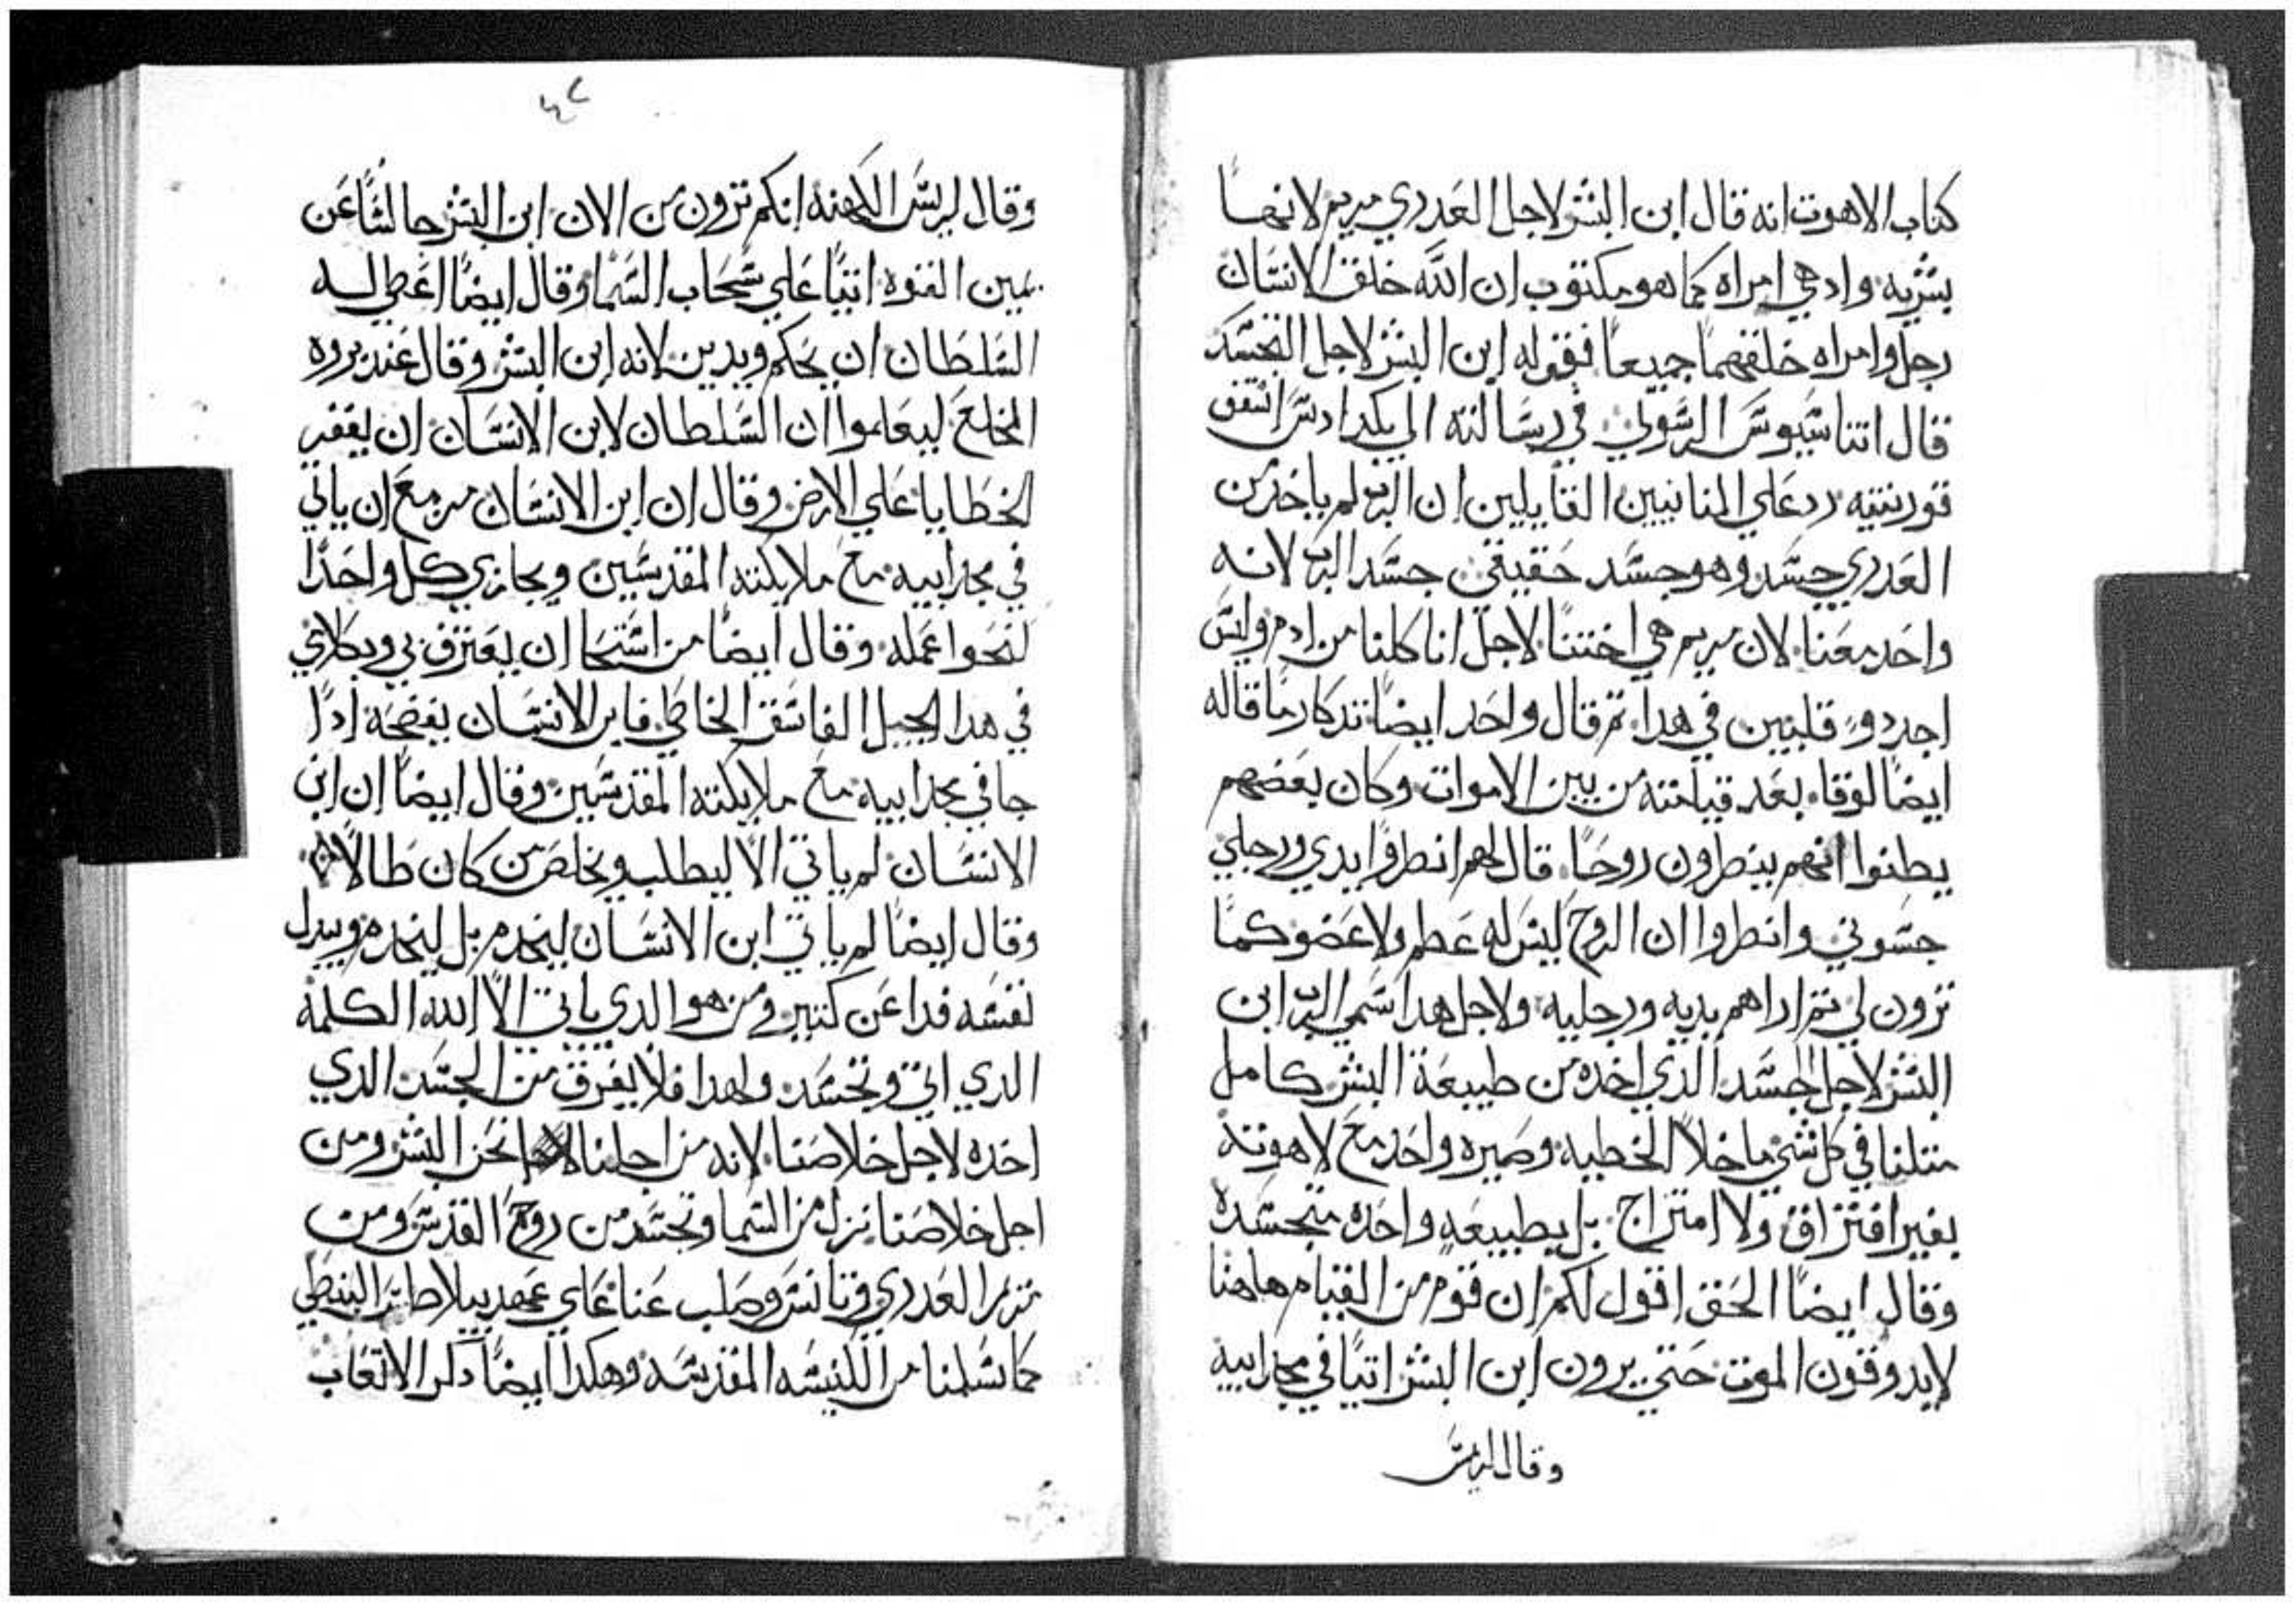 كتاب الاهوت انه قال ابن البشر لاجل العدري مريم لانها
بشريه واد هي امراه كما هو مكتوب ان الله خلق الانسان
رجل وامراه خلقهما جميعا فقوله ابن البشر لاجل التجسد
قال اتناسيوس الرسولي في رسالته الي اسقف
قورنتيه رد علي المنانيين القايلين ان الرب لم ياخد من
العدري جسد وهو جسد حقيقي جسد الرب لانه
واحد معنا لان مريم هي اختنا لاجل انا كلنا من ادم وليس
احد دو قلبين في هدا تم قال واحد ايضا تدكار ما قاله
ايضا لوقا بعد قيامته من بين الاموات وكان بعضهم
يطنوا انهم ينطرون روحا قال لهم انطروا يدي ورجلي
جسوني وانطروا ان الروح ليس له عطم ولا عضو كما
ترون لي تم اراهم يديه ورجليه ولاجل هدا سمي الرب ابن
البشر لاجل الجسد الدي اخده من طبيعة البشر كامل
متلنا في كل شي ما خلا الخطيه وصيره واحد مع لاهوته
بغير افتراق ولا امتزاج بل بطبيعه واحده متجسده
وقال ايضا الحق اقول لكم ان قوم من القيام هاهنا
لايدوقون الموت حتي يرون ابن البشر اتيا في مجد ابيه
وقال لريس
٤٢
وقال لريس الكهنه انكم ترون من الان ابن البشر جالسا عن
يمين القوه اتيا علي سحاب السما وقال ايضا اعطي له
السلطان ان يحكم ويدين لانه ابن البشر وقال عند بروه
المخلع ليعلموا ان السلطان لابن الانسان ان يغفر
الخطايا علي الارض وقال ان ابن الانسان مزمع ان ياتي
في مجد ابيه مع ملايكته المقدسين ويجازي كل واحدا
لنحوا عمله وقال ايضا من استحا ان يعترف بي وبكلامي
في هدا الجيل الفاسق الخاطي فابن الانسان يفضحه ادا
جا في مجد ابيه مع ملايكته المقدسين وقال ايضا ان ابن
الانسان لم ياتي الا ليطلب ويخلص من كان ضالا
وقال ايضا لم ياتي ابن الانسان ليخدم بل ليخدم ويبدل
نفسه فدا عن كتير ومن هو الدي ياتي الا الله الكلمه
الدي اتي وتجسد ولهدا فلا يفرق من الجسد الدي
اخده لاجل خلاصنا لانه من اجلنا نحن البشر ومن
اجل خلاصنا نزل من السما وتجسد من روح القدس ومن
مريم العدري وتانس وصلب عنا علي عهد بيلاطس البنطي
كما تسلمنا من الكنيسه المقدسه وهكدا ايضا دكر الاتعاب